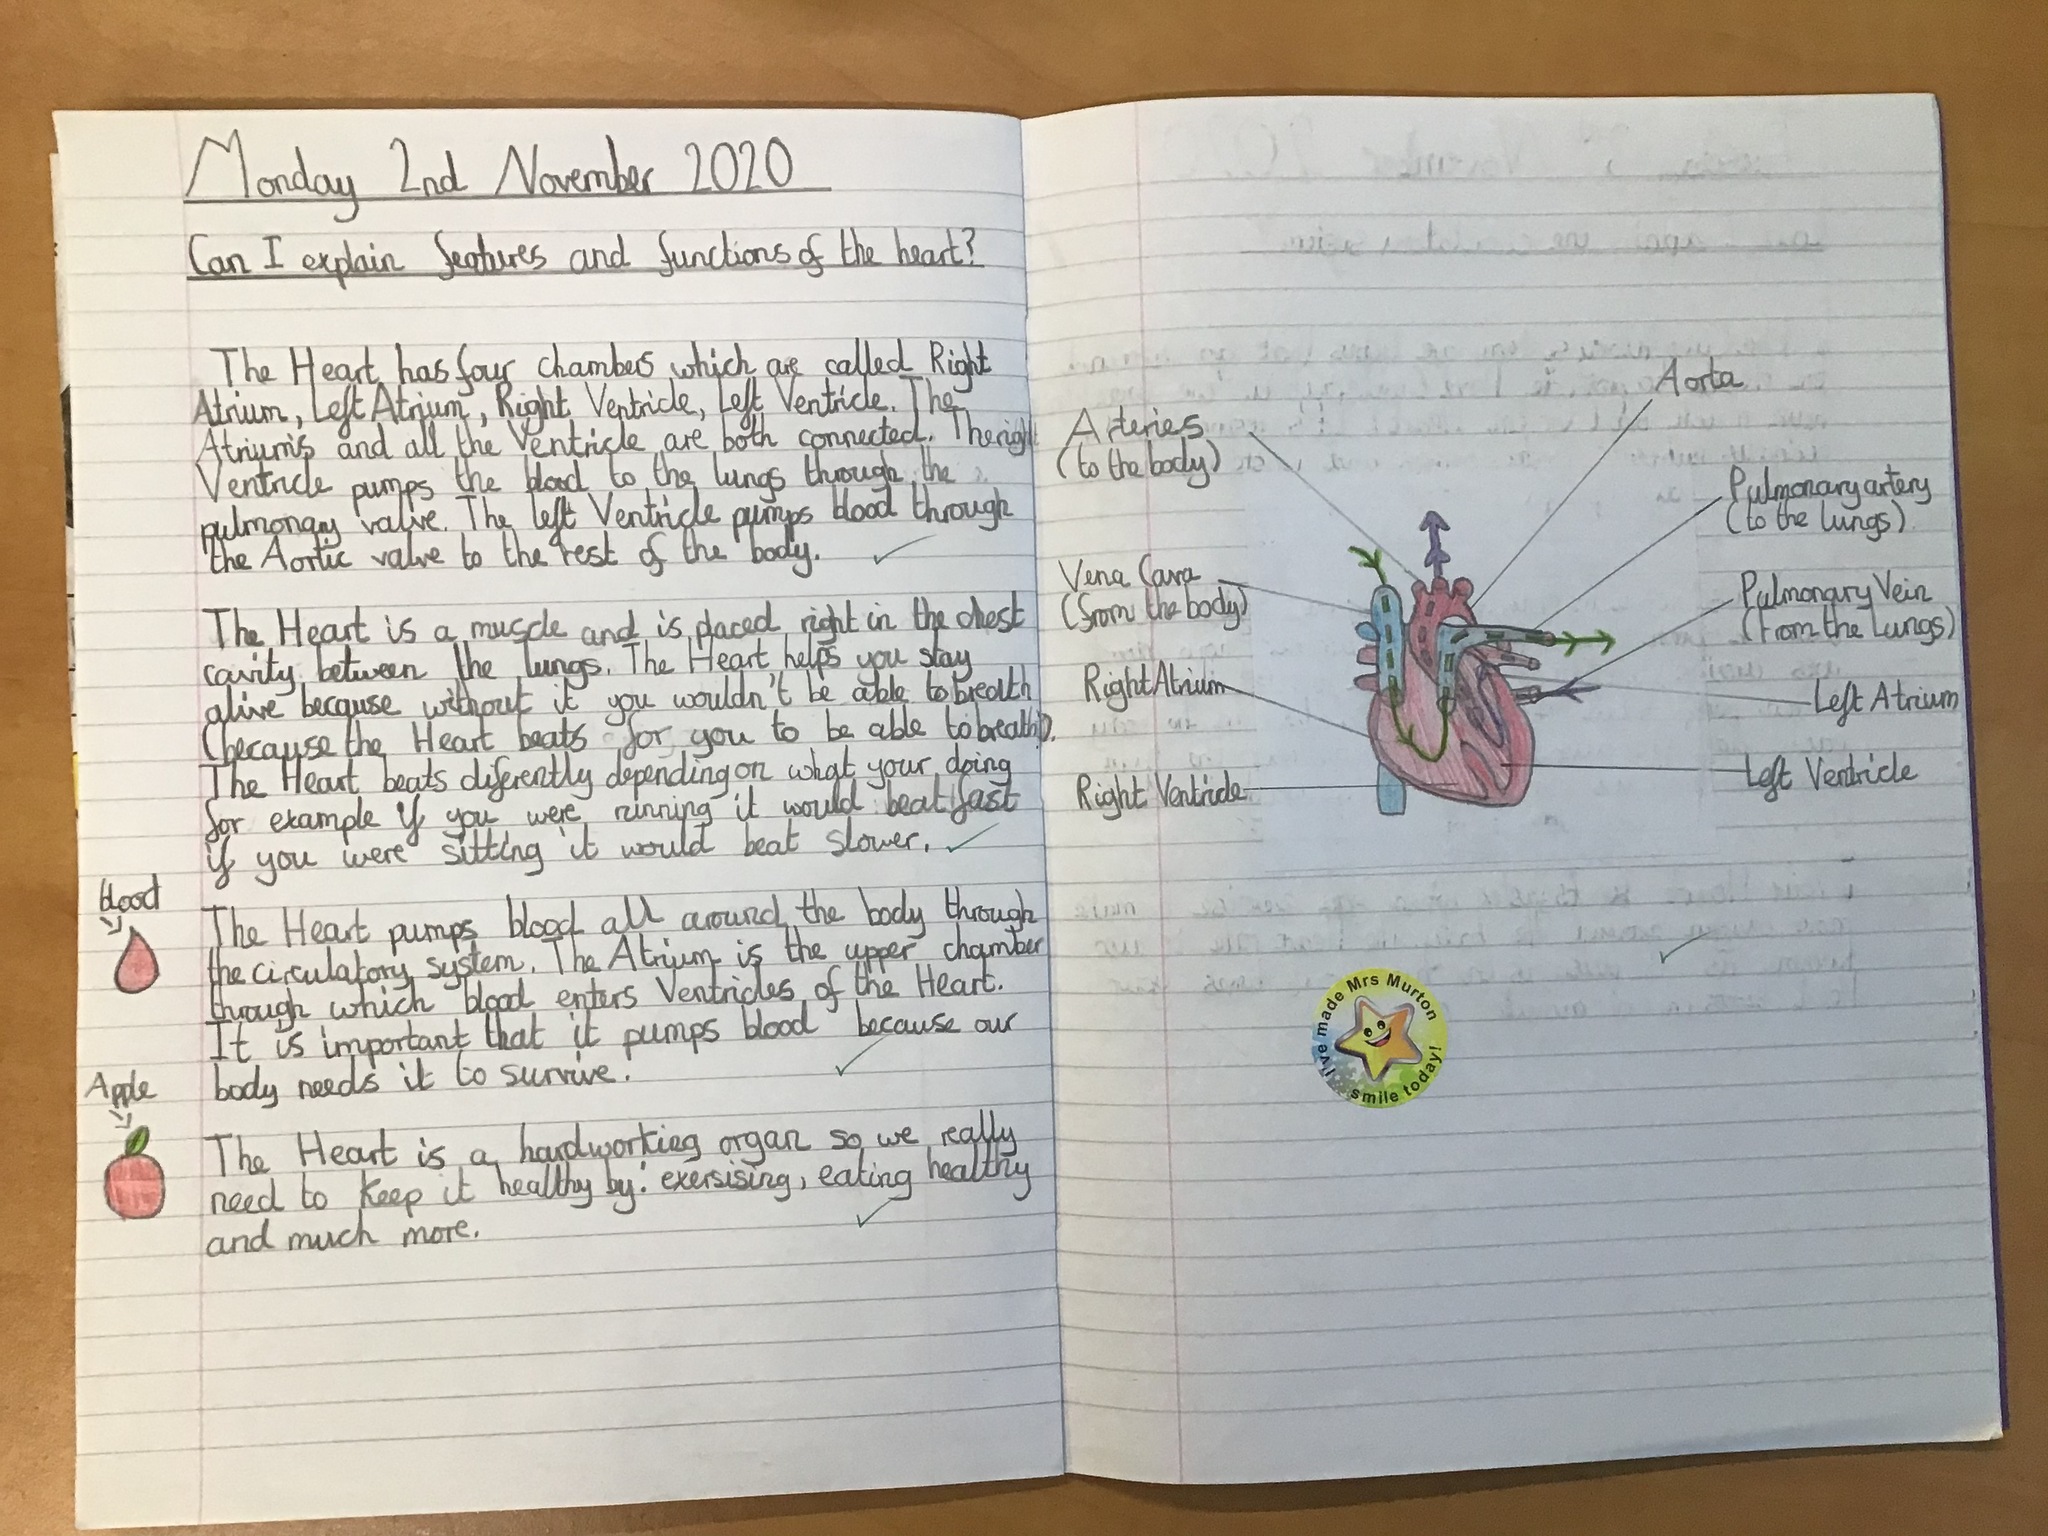 Monday 2nd November 2020
Can I explain features and functions of the heart?
The Heart has four chambers which are called Right
Atrium, Left Atrium, Right Ventricle, Left Ventricle. The
Atrium's and all the Ventricle are both connected. The right
Ventricle pumps the blood to the lungs through the
pulmonary valve. The left Ventricle pumps blood through
the Aortic valve to the rest of the body.
The Heart is a muscle and is placed right in the chest
cavity between the lungs. The Heart helps you stay
alive because without it you wouldn't be able to breath
(because the Heart beats for you to be able to breath).
The Heart beats diferently depending on what your doing
for example if you were running it would beat fast
if you were sitting it would beat slower.
blood
The Heart pumps blood all around the body through
the circulatory system. The Atrium is the upper chamber
through which blood enters Ventricles of the Heart.
It is important that it pumps blood because our
body needs it to survive.
Apple
The Heart is a hardworking organ so we really
need to keep it healthy by: exersising, eating healthy
and much more.
Aorta
Arteries
(to the body)
Pulmonary artery
(to the lungs)
Vena Cava
(from the body)
Pulmonary Vein
(from the lungs)
Right Atrium
Left Atrium
Left Ventricle
Right Ventricle
I've made Mrs Murton
smile today!